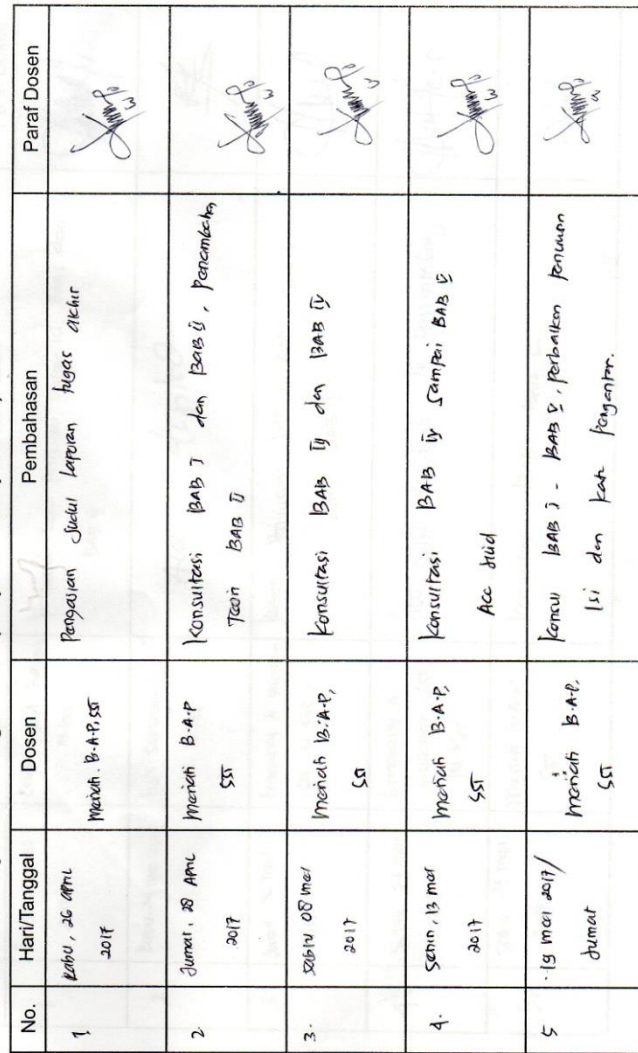 No. Hari/Tanggal Dosen Pembahasan Paraf Dosen
1. Rabu, 26 April
2017
Mariati. B.A.P, SST
Pengajuan Judul Laporan tugas akhir
2. Jumat, 28 April
2017
Mariati B.A.P
SST
Konsultasi BAB I dan BAB II, penambahan
Teori BAB II
3. Sabtu 08 mei
2017
Mariati B.A.P,
SST
Konsultasi BAB IV dan BAB IV
4. Senin, 13 mei
2017
Mariati B.A.P,
SST
Konsultasi BAB IV sampai BAB V
Acc
5 19 mei 2017/
Jumat
Mariati B.A.P,
SST
Konsul BAB I - BAB V, perbaikan
Isi dan kata pengantar.